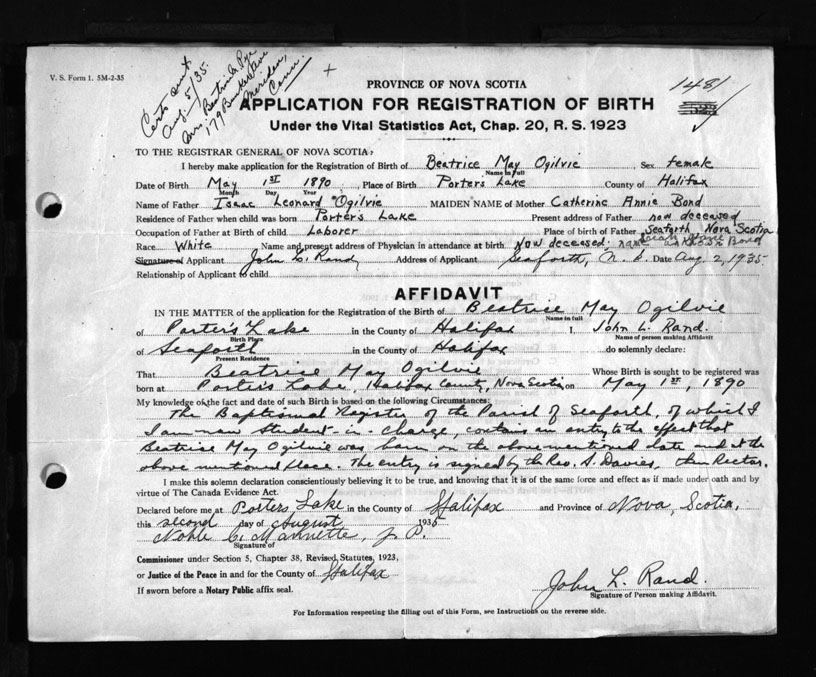 V. S. Form 1. 5M-2-35
Certs sent
Aug. 5/35.
Mrs. Beatrice Pye
179 Bunker Ave
Meriden,
Conn.
PROVINCE OF NOVA SCOTIA
1481
APPLICATION FOR REGISTRATION OF BIRTH
Under the Vital Statistics Act, Chap. 20, R. S. 1923
TO THE REGISTRAR GENERAL OF NOVA SCOTIA:
I hereby make application for the Registration of Birth of Beatrice May Ogilvie Sex female
Name in Full
Date of Birth May 1st 1890 Place of Birth Porters Lake County of Halifax
Month Day Year
Name of Father Isaac Leonard Ogilvie MAIDEN NAME of Mother Catherine Annie Bond
Residence of Father when child was born Porters Lake Present address of Father now deceased
Occupation of Father at Birth of child Laborer Place of birth of Father Seaforth, Nova Scotia
Race White Name and present address of Physician in attendance at birth Now deceased; name Bond
Signature of Applicant John L. Rand Address of Applicant Seaforth, N. S. Date Aug 2, 1935
Relationship of Applicant to child
AFFIDAVIT
IN THE MATTER of the application for the Registration of the Birth of Beatrice May Ogilvie
Name in full
of Porter's Lake in the County of Halifax I John L. Rand.
Birth Place Name of person making Affidavit
of Seaforth in the County of Halifax do solemnly declare:
Present Residence
That Beatrice May Ogilvie Whose Birth is sought to be registered was
born at Porter's Lake, Halifax County, Nova Scotia on May 1st, 1890
My knowledge of the fact and date of such Birth is based on the following Circumstances:
The Baptismal Register of the Parish of Seaforth, of which I
I am now Student-in-Charge, contains an entry to the effect that
Beatrice May Ogilvie was born on the above mentioned date and at the
above mentioned place. The entry is signed by the Rev. S. Davies, then Rector.
I make this solemn declaration conscientiously believing it to be true, and knowing that it is of the same force and effect as if made under oath and by
virtue of The Canada Evidence Act.
Declared before me at Porters Lake in the County of Halifax and Province of Nova Scotia,
this second day of August 1935
Noble C. Mannette, J. P.
Signature of
Commissioner under Section 5, Chapter 38, Revised Statutes, 1923,
or Justice of the Peace in and for the County of Halifax
If sworn before a Notary Public affix seal.
John L. Rand.
Signature of Person making Affidavit.
For Information respecting the filling out of this Form, see Instructions on the reverse side.